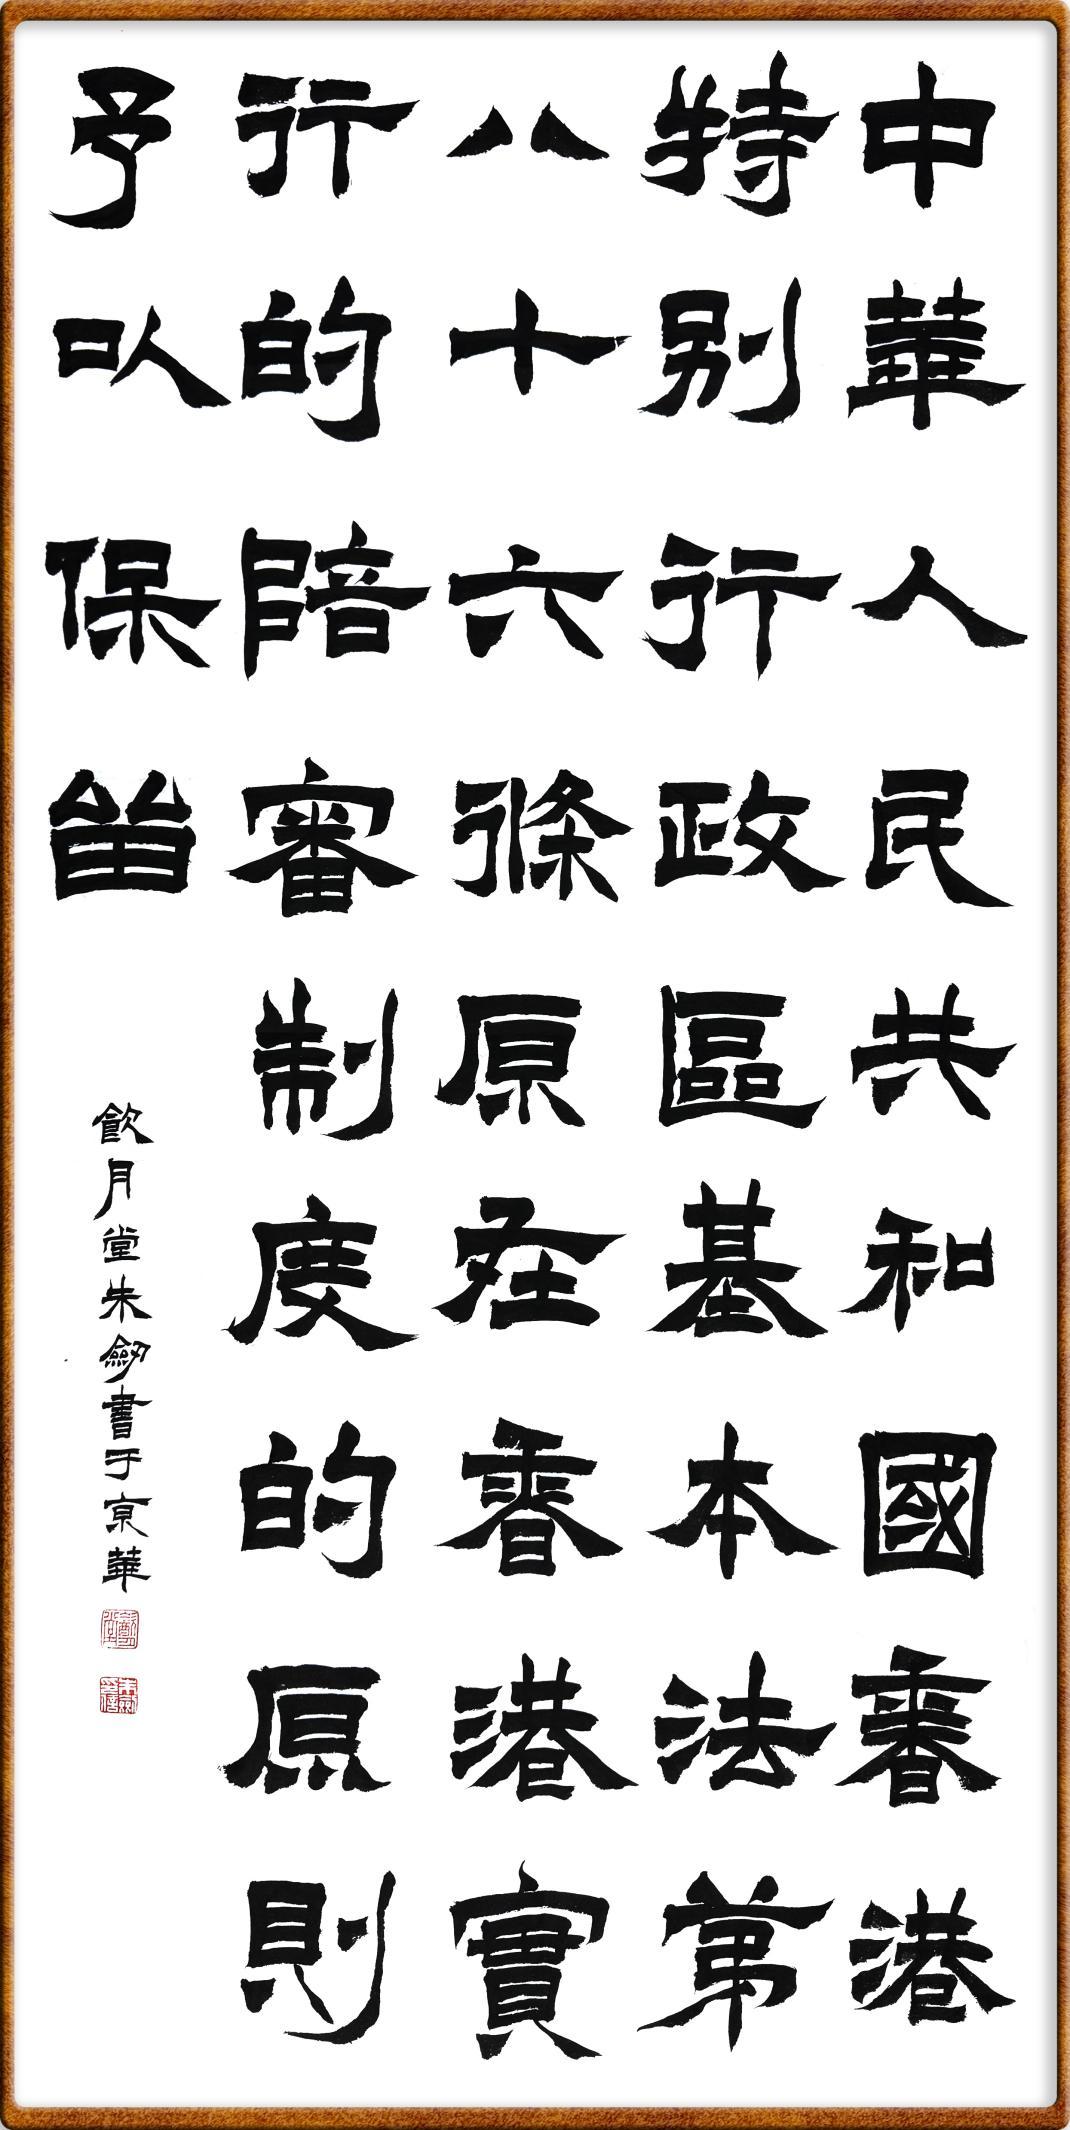 中華人民共和國香港
特别行政區基本法第
八十六條原在香港實
行的陪審制度的原則
予以保留
飲月堂朱劒書于京華